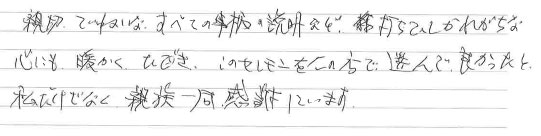 親切、ていねいな、すべての事柄の説明など、気持ちてしかれがちな
心にも暖かくひびき、このセレモニーをこの店で選んで良かったと
私だけでなく親族一同感謝しています。